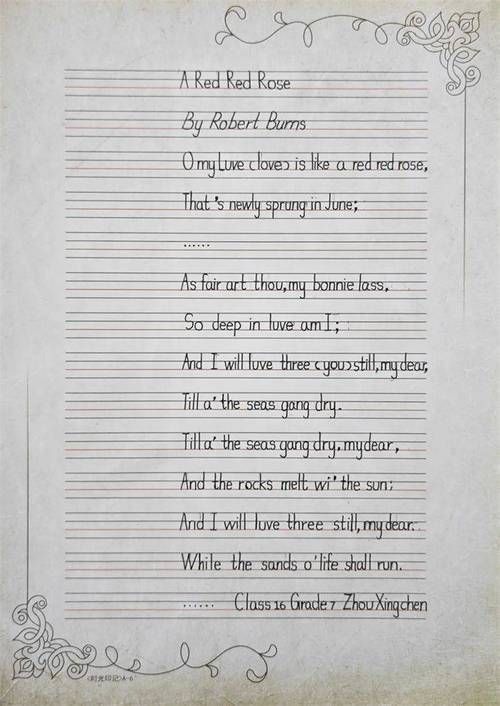 A Red Red Rose
By Robert Burns
O my Luve (love) is like a red red rose,
That's newly sprung in June;
......
As fair art thou, my bonnie lass,
So deep in luve am I;
And I will luve three (you) still, my dear,
Till a' the seas gang dry.
Till a' the seas gang dry, my dear,
And the rocks melt wi' the sun;
And I will luve three still, my dear.
While the sands o' life shall run.
...... Class 16 Grade 7 Zhou Xingchen
《时光印记》A-6